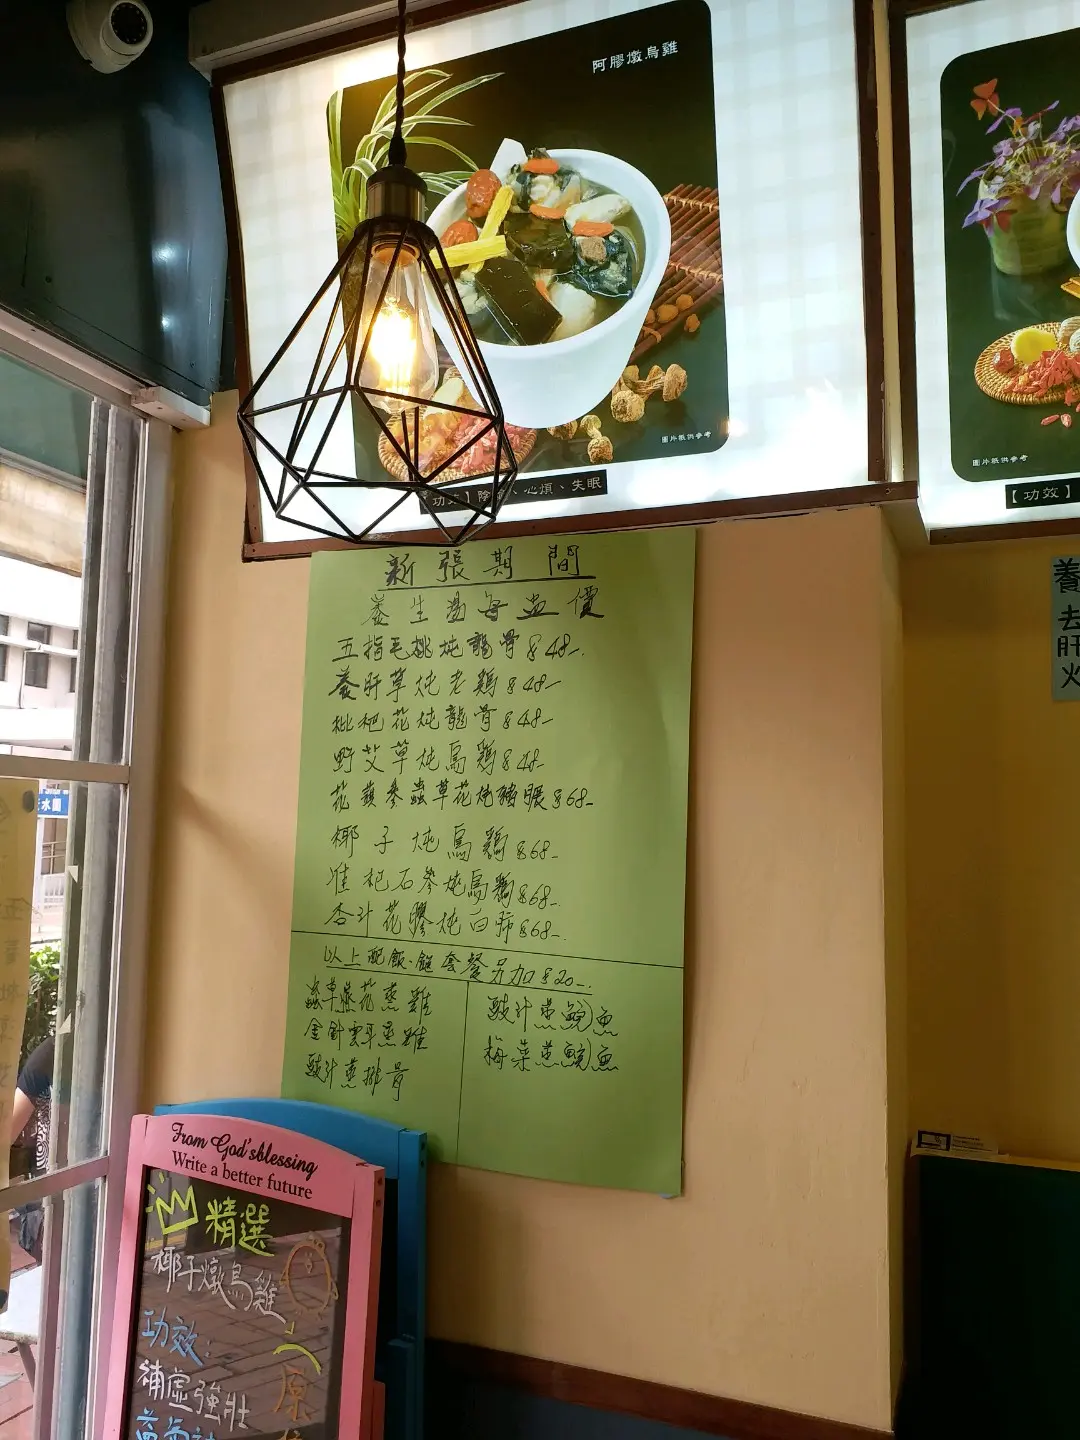 阿膠燉烏雞
圖片祇供參考
心煩、失眠
圖片祇供參考
【功效】
新張期間
養生湯每盅價
五指毛桃炖龍骨$48-
養肝草炖老鷄$48-
枇杷花炖龍骨$48-
野艾草炖烏鷄$48-
花旗參蟲草花炖豬𦟌$68-
椰子炖烏鷄$68-
淮杞石參炖烏鷄$68-
杏汁花膠炖白肺$68-
以上配飯、餸套餐另加$20-
蟲草燕花蒸雞
金針雲耳蒸雞
豉汁蒸排骨
豉汁蒸鯇魚
梅菜蒸鯇魚
養
去
肝
火
From God'sblessing
Write a better future
精選
椰子燉烏雞
功效:
補虛強壯
原